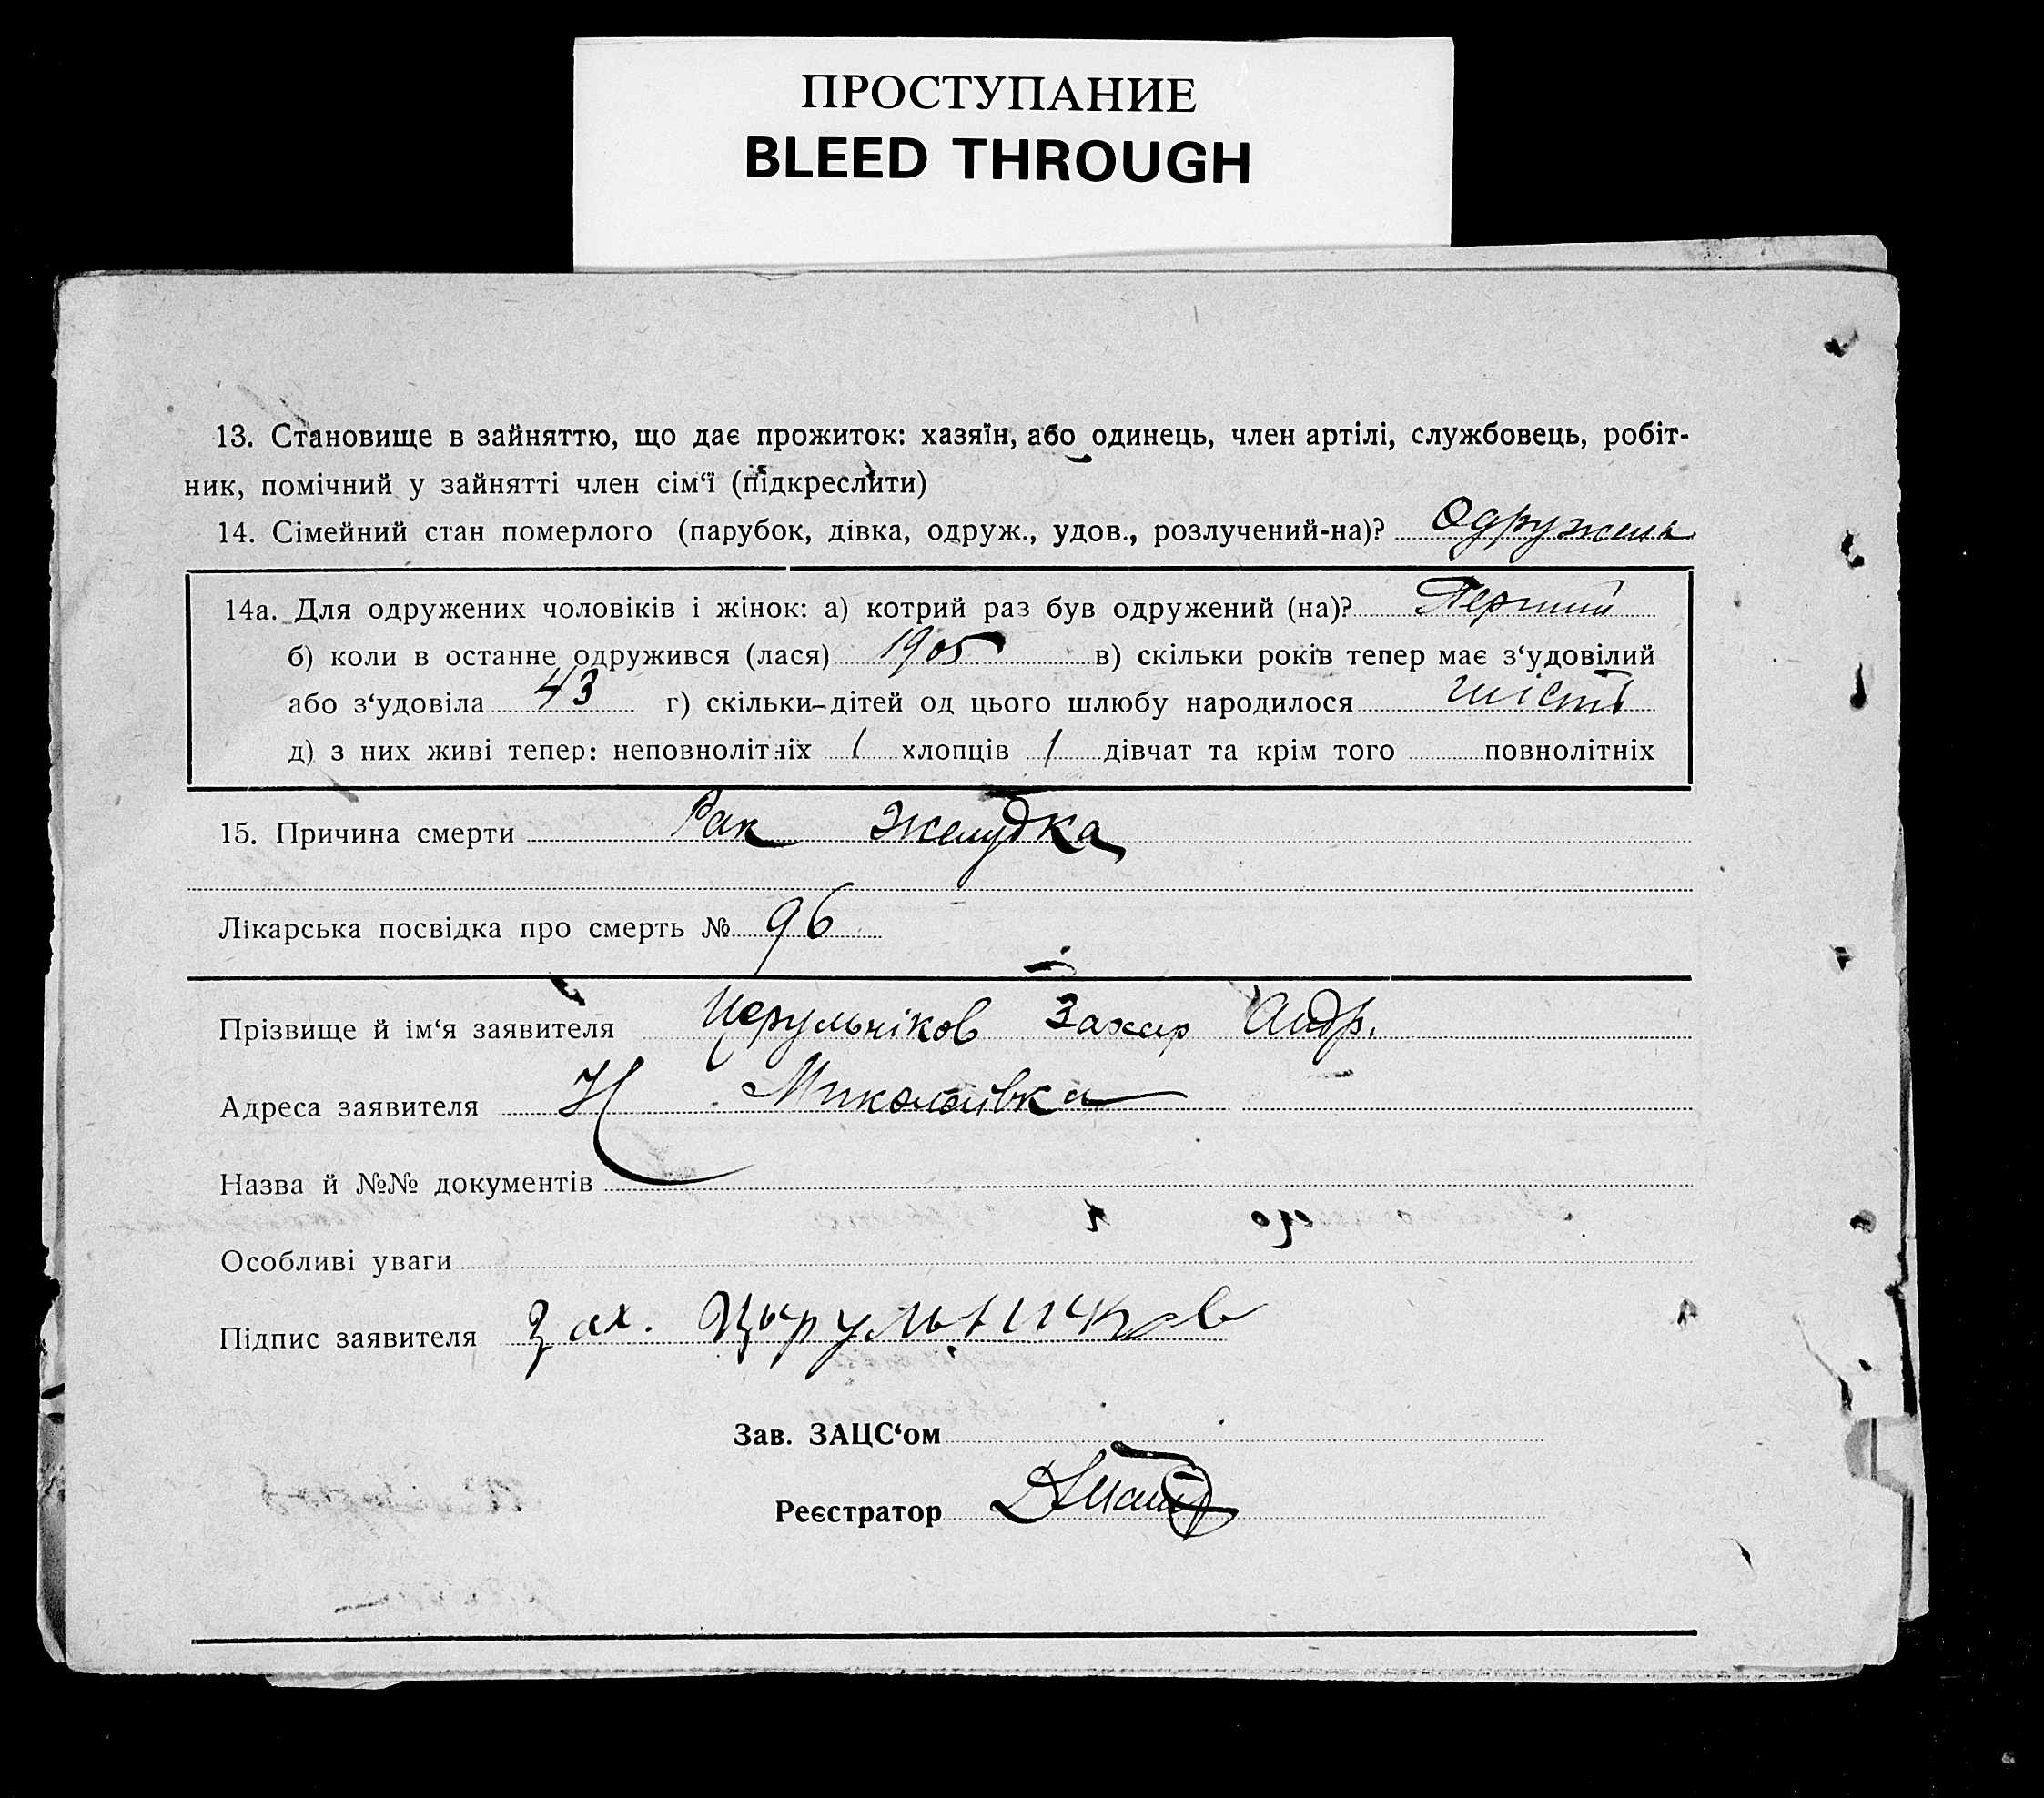 ПРОСТУПАНИЕ
BLEED THROUGH
13. Становище в зайняттю, що дає прожиток: хазяїн, або одинець, член артілі, службовець, робіт-
ник, помічний у зайнятті член сім‘ї (підкреслити)
14. Сімейний стан померлого (парубок, дівка, одруж., удов., розлучений-на)? Одружень
14а. Для одружених чоловіків і жінок: а) котрий раз був одружений (на)? Перший
б) коли в останнє одружився (лася) 1905 в) скільки років тепер має з‘удовілий
або з‘удовіла 43 г) скільки-дітей од цього шлюбу народилося шість
д) з них живі тепер: неповнолітніх 1 хлопців 1 дівчат та крім того повнолітніх
15. Причина смерти Рак Желудка
Лікарська посвідка про смерть № 96
Прізвище й ім‘я заявителя Церульніков Захар Андр.
Адреса заявителя Н Миколаївка
Назва й №№ документів
Особливі уваги
Підпис заявителя Зах. Цырульников
Зав. ЗАЦС‘ом
Реєстратор